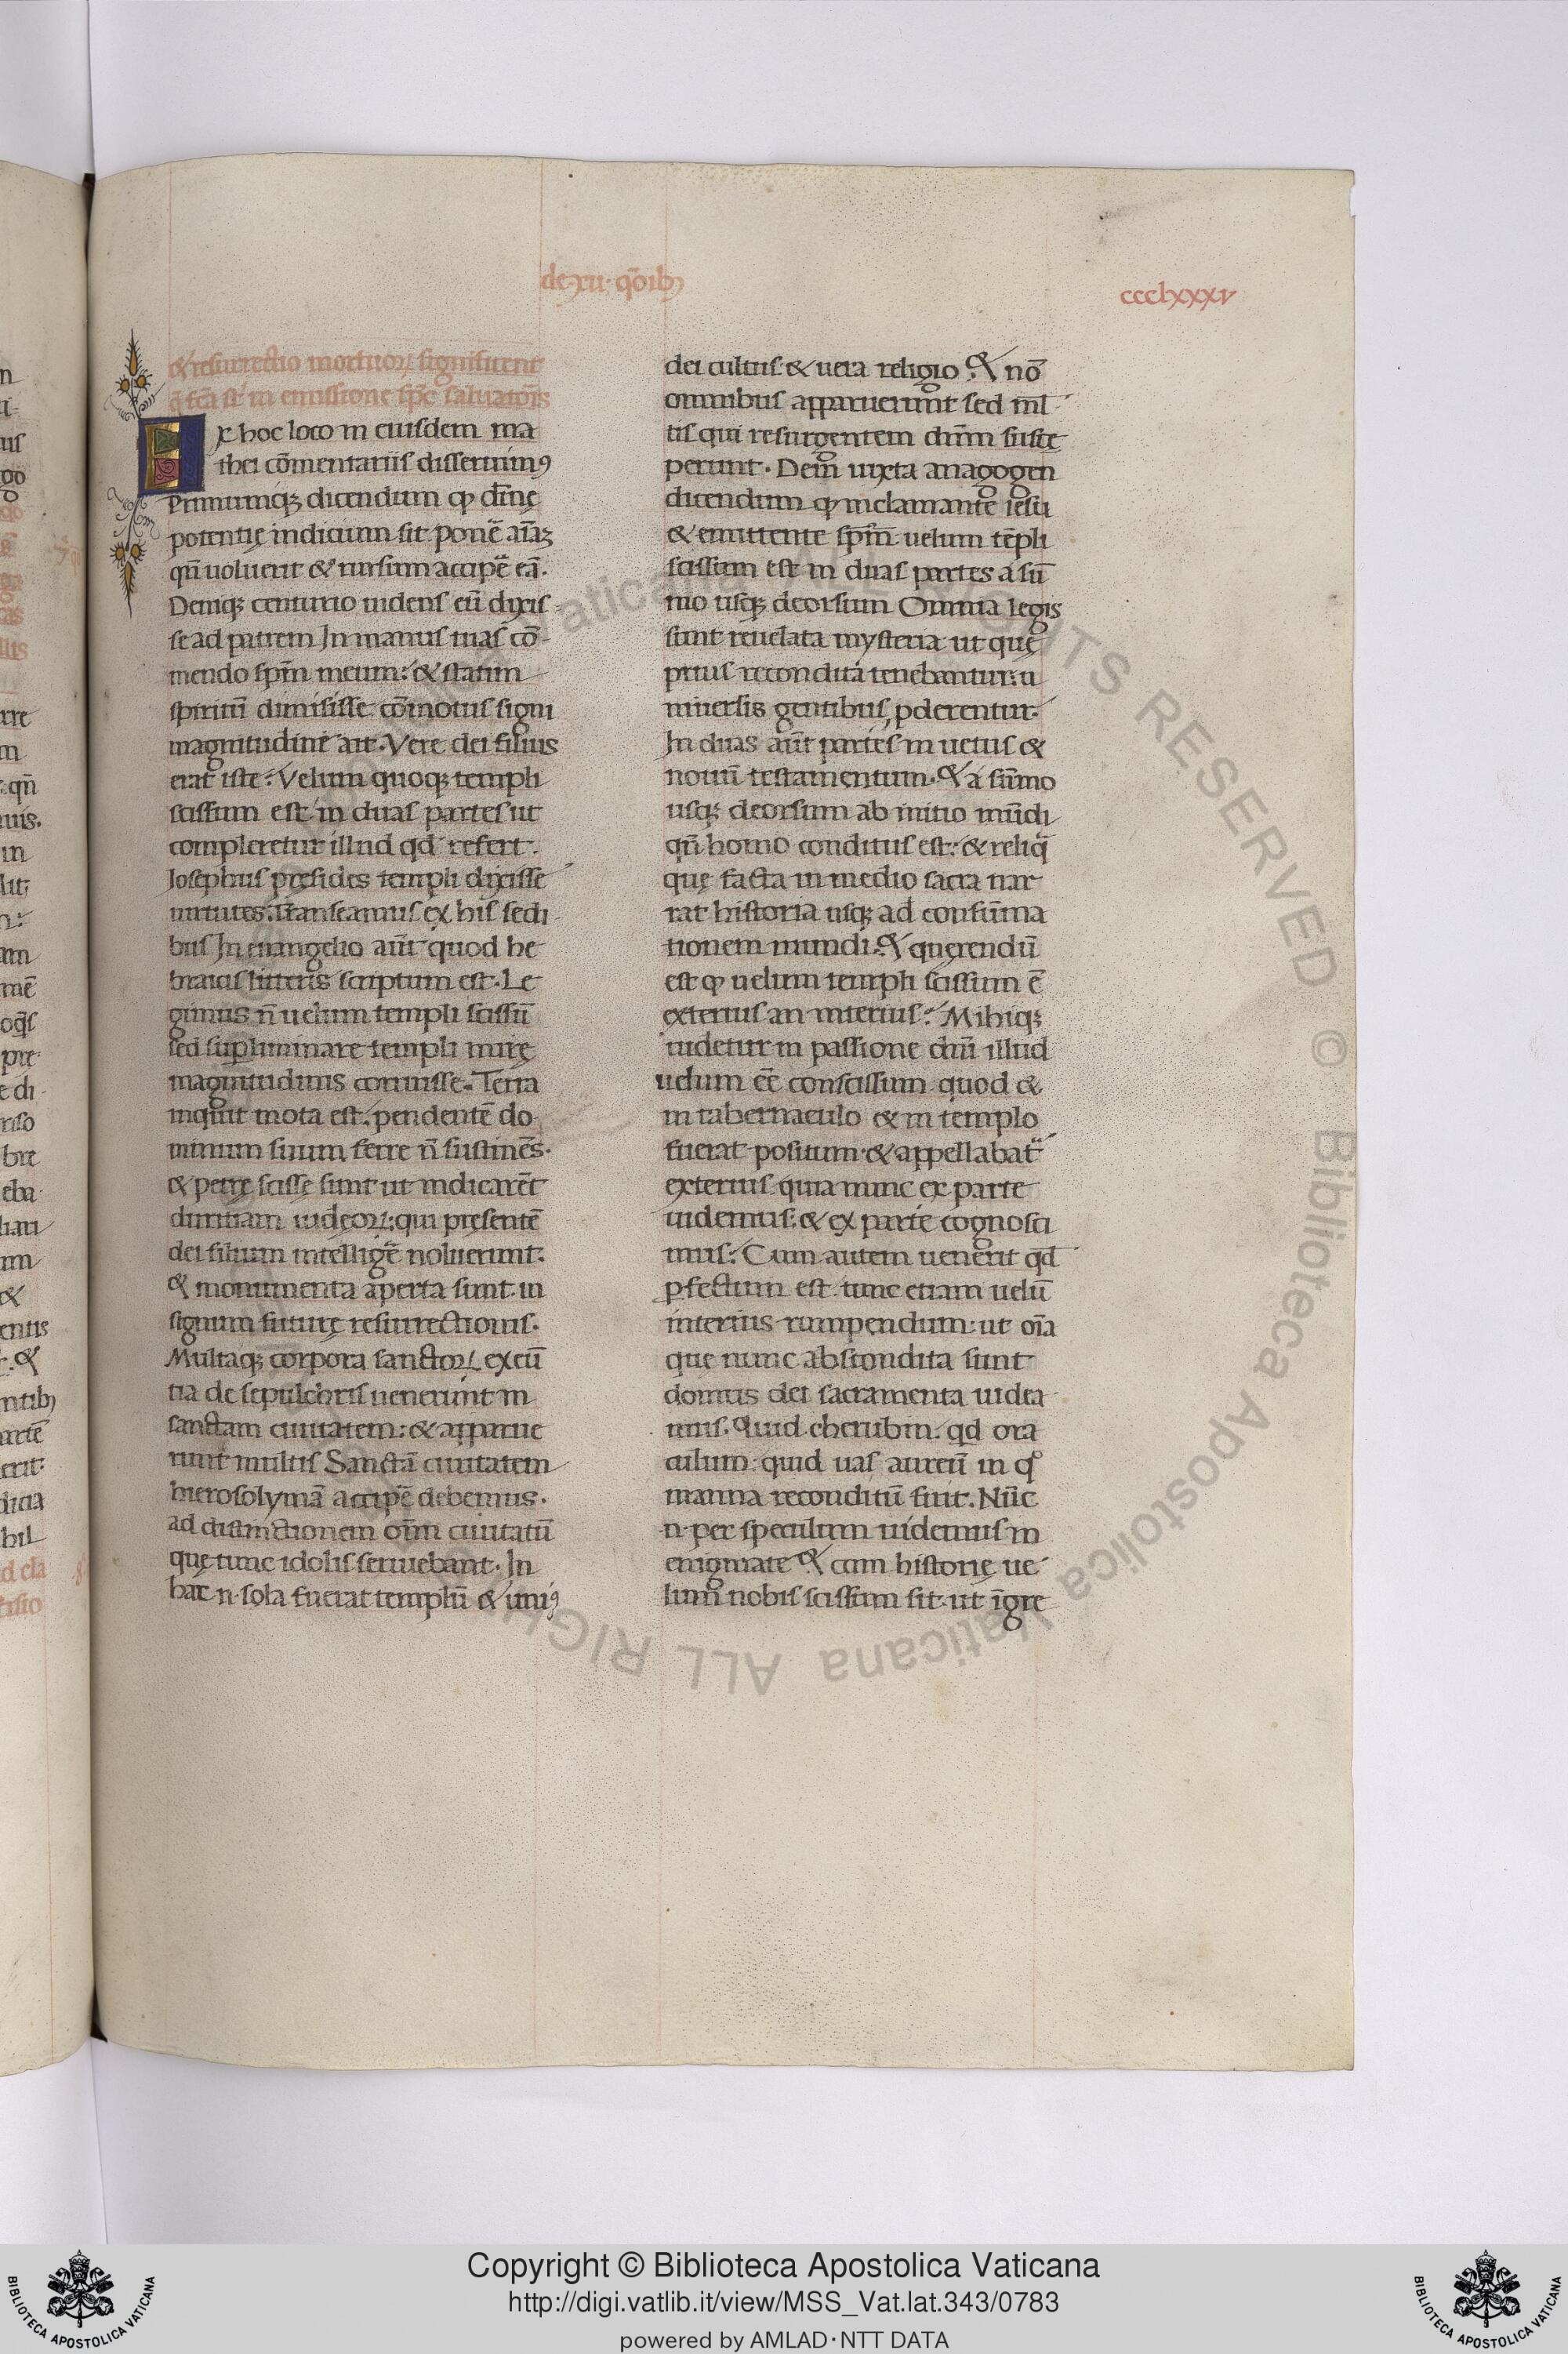 de xii · q̄oib;
ccclxxxv
& resurrectio mortuoꝝ signisicent
q̄ fc̄a st̄ in emissione sp̄c saluatōis
Ex hoc loco in eiusdem ma
thei cōmentariis disseruimꝰ
Primumqꝫ dicendum ꝙ diīnę
potentię indicium sit ponē aīaꝫ
qn̄ uoluerit & rursum accipē eā.
Deniqꝫ centurio uidens eū dixis
se ad patrem In manus tuas cō
mendo spm̄ meum: & statim
spiritū dimisisse cōmotus signi
magnitudine ait. Vere dei filius
erat iste: Velum quoqꝫ templi
scissum est in duas partes ut
compleretur illud qd refert.
Iosephus pręsides templi dixisse
uirtutes. Transeamus ex his sedi
bus In euangelio aūt quod he
braicis litteris scriptum est. Le
gimus n̄ uelum templi scissū
sed supliminare templi mirę
magnitudinis corruisse. Terra
inquit mota est. pendentē do
minum suum ferre n̄ sustinēs.
& petrę scissę sunt ut indicarēt
duritiam iudęoꝝ: qui pręsentē
dei filium intelligē noluerunt:
& monumenta aperta sunt in
signum futurę resurrectionis.
Multaqꝫ corpora sanctoꝝ exeū
tia de sepulchris uenerunt in
sanctam ciuitatem: & apparue
runt multis Sanctā ciuitatem
hierosolymā accipē debemus.
ad distinctionem oīm ciuitatū
quę tunc idolis seruiebant. In
hac n. sola fuerat templū & uniꝰ
dei cultus & uera religio. & nō
omnibus apparuerunt sed ml̄
tis qui resurgentem dnm̄ susce
perunt. Dem̄ iuxta anagogen
dicendum ꝙ inclamante iesu
& emittente spm̄ uelum tēpli
scissum est in duas partes a sū
mo usqꝫ deorsum Omnia legis
sunt reuelata mysteria ut quę
prius recondita tenebantur: u
niuersis gentibus ꝓderentur.
In duas aūt partes in uetus &
nouū testamentum. & a sūmo
usqꝫ deorsum ab initio mūdi
qn̄ homo conditus est: & reliq̄
quę facta in medio sacra nar
rat historia usqꝫ ad consūma
tionem mundi. & querendū
est ꝙ uelum templi scissum ē
exterius an interius: Mihiqꝫ
uidetur in passione dnī illud
uelum eē conscissum quod &
in tabernaculo & in templo
fuerat positum & appellabat̄
exterius quia nunc ex parte
uidemus: & ex parte cognosci
mus: Cum autem uenerit qd
ꝑfectum est tunc etiam uelū
interius rumpendum: ut oīa
que nunc abscondita sunt
domus dei sacramenta uidea
mus. Quid cherubin. qd ora
culum: quid uas aureū in qͦ
manna reconditū fuit. Nūc
n. per speculum uidemus in
enigmate & cam historię ue
lum nobis scissum sit. ut īgre
Copyright © Biblioteca Apostolica Vaticana
http://digi.vatlib.it/view/MSS_Vat.lat.343/0783
powered by AMLAD · NTT DATA